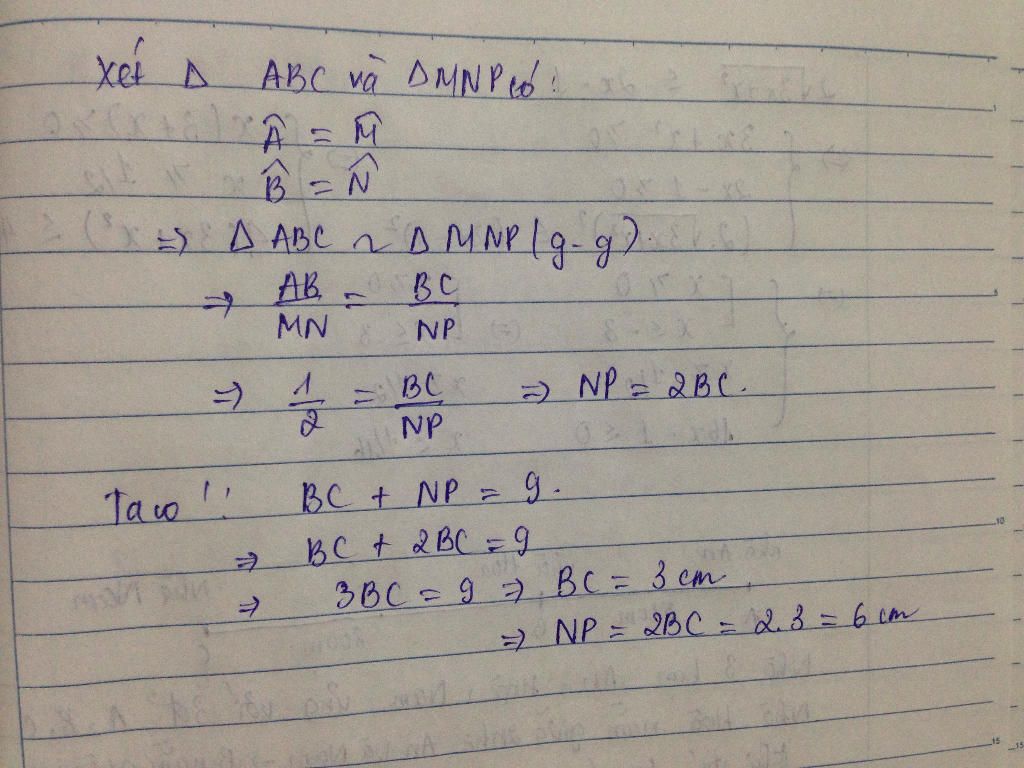 Xét Δ ABC và Δ MNP có:
Â = M̂
B̂ = N̂
=> Δ ABC ~ Δ MNP (g-g).
=> AB/MN = BC/NP
=> 1/2 = BC/NP => NP = 2BC.
Ta có: BC + NP = 9.
=> BC + 2BC = 9
=> 3BC = 9 => BC = 3 cm
=> NP = 2BC = 2.3 = 6 cm